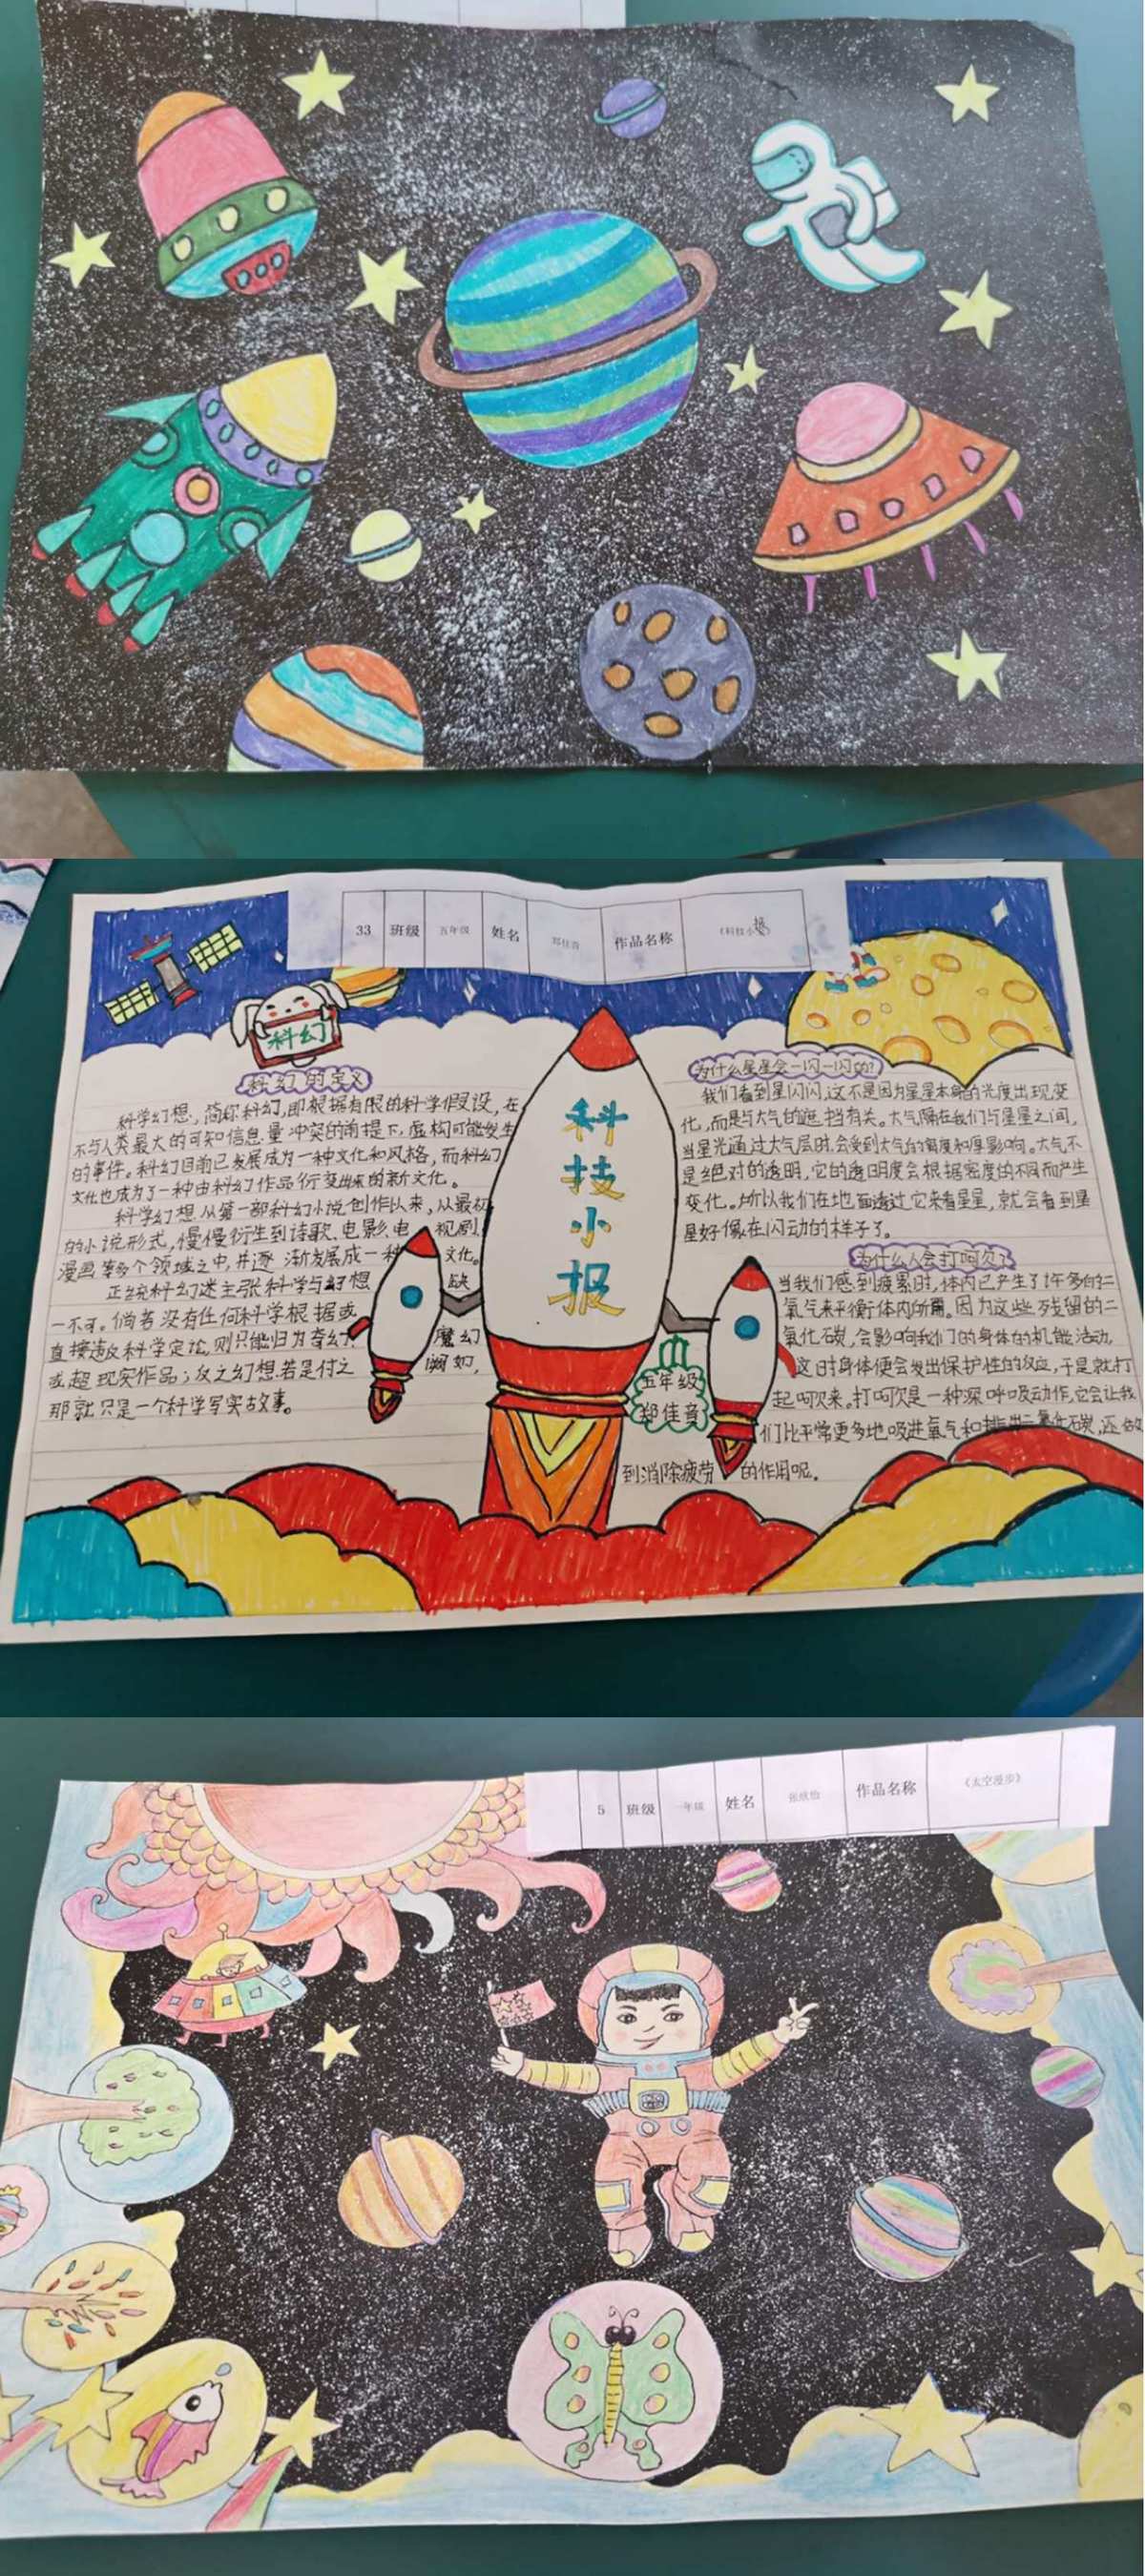 33 班级 五年级 姓名 郑佳音 作品名称 《科技小报》
科幻
科幻的定义
科学幻想,简称科幻,即根据有限的科学假设,在
不与人类最大的可知信息量冲突的前提下,虚构可能发生
的事件。科幻目前已发展成为一种文化和风格,而科幻
文化也成为了一种由科幻作品衍变出来的新文化。
科学幻想从第一部科幻小说创作以来,从最初
的小说形式,慢慢衍生到诗歌、电影、电视剧、
漫画等多个领域之中,并逐渐发展成一种文化。
正统科幻迷主张科学与幻想缺
一不可。倘若没有任何科学根据或
直接违反科学定论,则只能归为奇幻、魔幻
或超现实作品;反之幻想若是付之阙如,
那就只是一个科学写实故事。
科
技
小
报
五年级
郑佳音
为什么星星会一闪一闪的?
我们看到星闪闪,这不是因为星星本身的光度出现变
化,而是与大气的遮挡有关。大气隔在我们与星星之间,
当星光通过大气层时,会受到大气的密度和厚影响。大气不
是绝对的透明,它的透明度会根据密度的不同而产生
变化。所以我们在地面透过它来看星星,就会看到星
星好像在闪动的样子了。
为什么人会打呵欠?
当我们感到疲累时,体内已产生了许多的二
氧气来平衡体内所需。因为这些残留的二
氧化石炭,会影响我们的身体的机能活动
这时身体便会发出保护性的反应,于是就打
起呵欠来。打呵欠是一种深呼吸动作,它会让我
们比平常更多地吸进氧气和排出二氧化石炭,还做
到消除疲劳的作用呢。
5 班级 一年级 姓名 作品名称 《太空漫步》